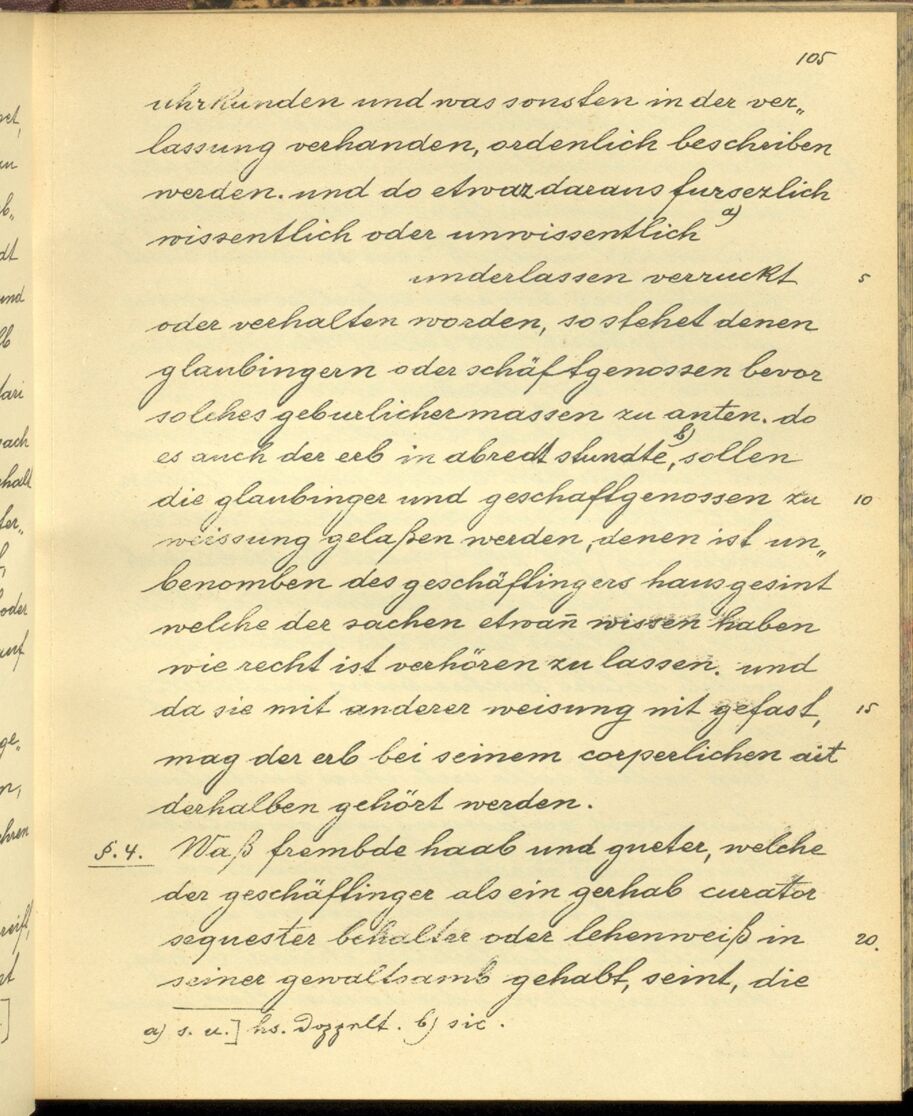 105
uhrkunden und was sonsten in der ver„
lassung verhanden, ordenlich beschriben
werden. und do etwaz daraus fursezlich
wissentlich oder unwissentlich a)
underlassen verruckt 5
oder verhalten worden, so stehet denen
glaubingern oder schäftgenossen bevor
solches geburlichermassen zu anten. do
es auch der erb in abredt stundte b), sollen
die glaubinger und geschaftgenossen zu 10
weissung gelaßen werden, denen ist un„
benomben des geschäftingers hausgesint
welche der sachen etwan̄ wissen haben
wie recht ist verhören zu lassen. und
da sie mit anderer weisung nit gefast, 15
mag der erb bei seinem corperlichen ait
derhalben gehört werden.
§. 4. Waß frembde haab und gueter, welche
der geschäftinger als ein gerhab curator
sequester behalter oder lehenweiß in 20.
seiner gewaltsamb gehabt, seint, die
a) s. u.] hs. Doppelt. b) sic.
net,
un
b„
dt
und
lb
tari
nach
ter„
oder
auf
ge„
n,
hren
reift,
t
]